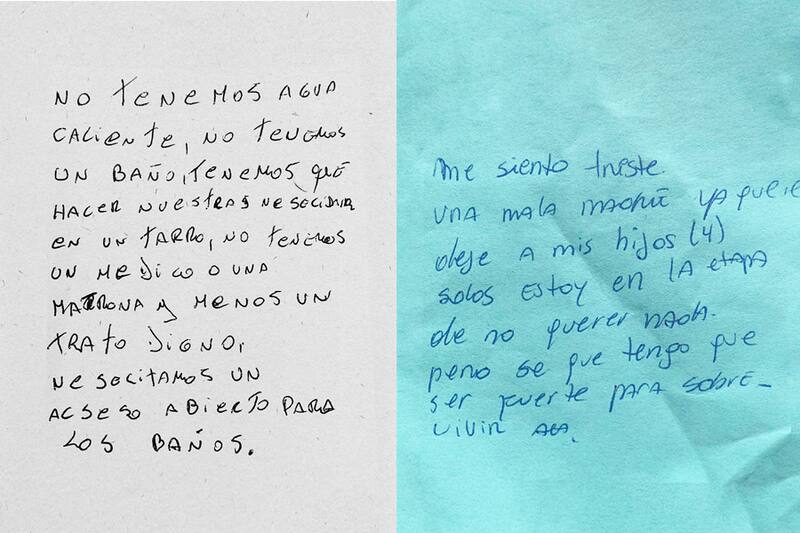 NO TENEMOS AGUA
CALIENTE, NO TENEMOS
UN BAÑO, TENEMOS QUE
HACER NUESTRAS NESECIDAR
EN UN TARRO, NO TENEMOS
UN MEDICO O UNA
MATRONA Y MENOS UN
TRATO DIGNO,
NESECITAMOS UN
ACSESO ABIERTO PARA
LOS BAÑOS.
me siento triste.
una mala madre ya que
deje a mis hijos (4)
solos estoy en la etapa
de no querer nada.
pero se que tengo que
ser fuerte para sobre-
vivir aca.